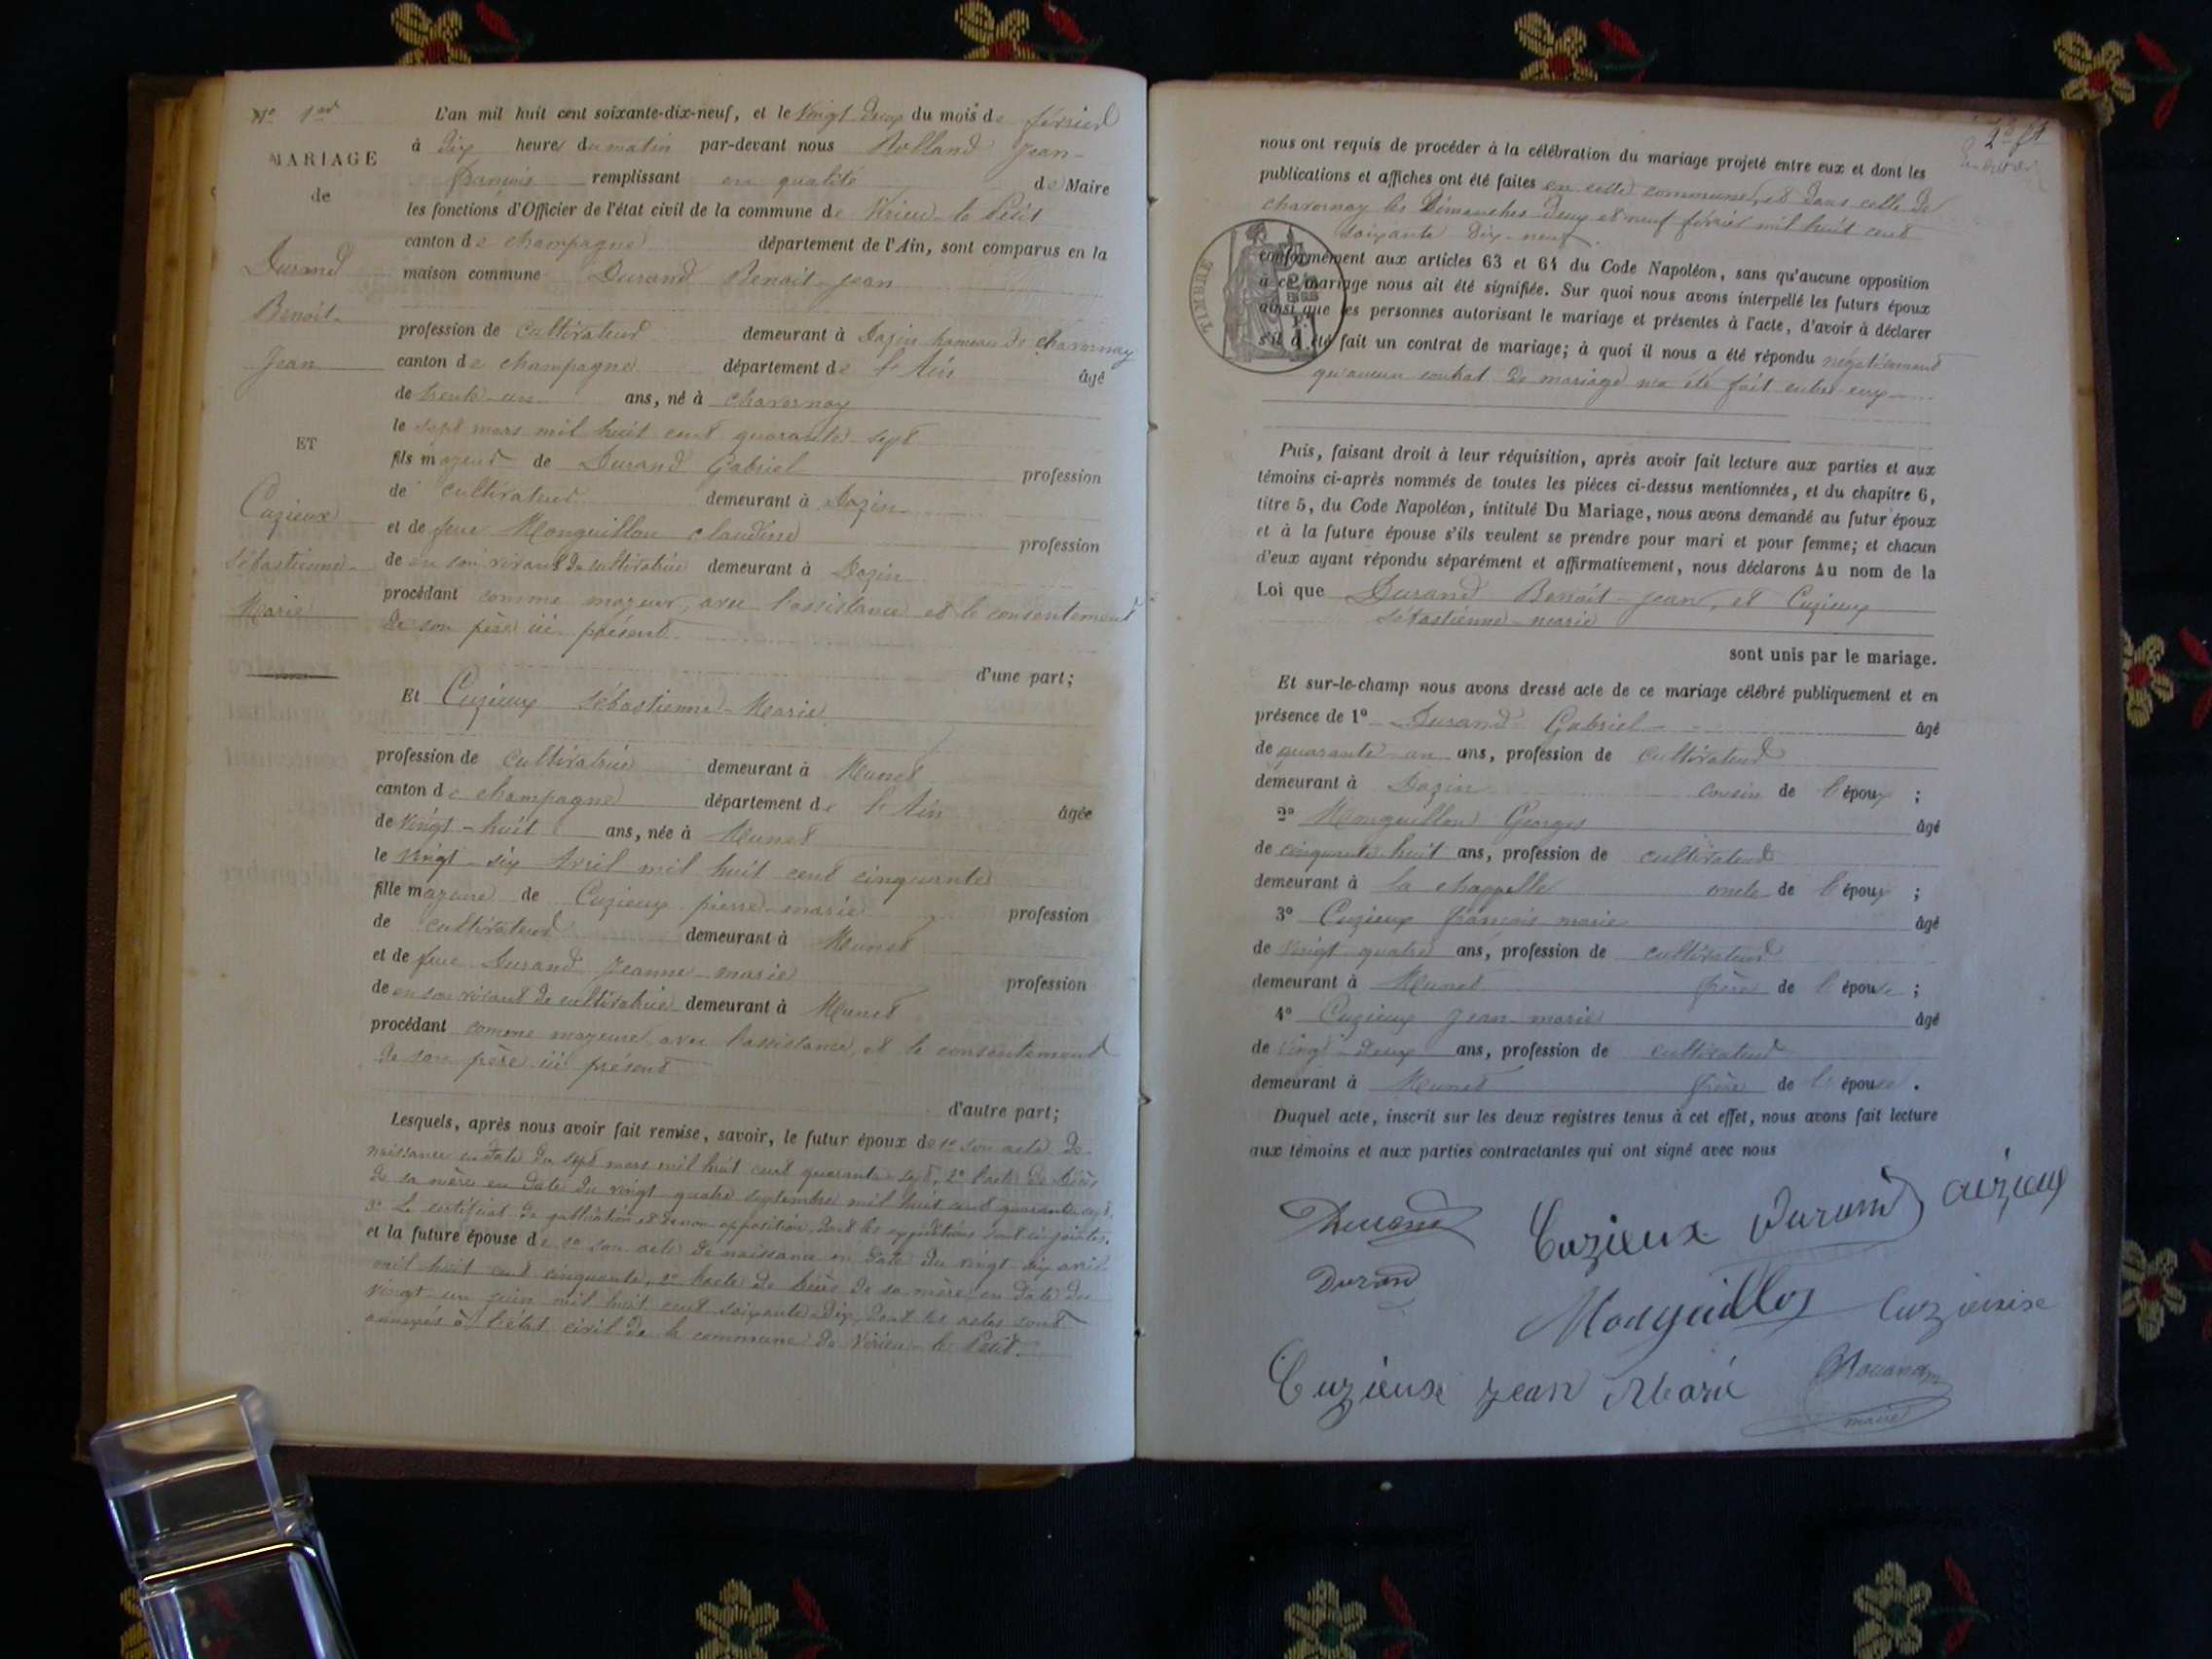 N° 1er
MARIAGE
de
Durand
Benoit-
Jean
ET
Cuzieux
Sébastienne-
Marie
L'an mil huit cent soixante-dix-neuf, et le vingt deux du mois de février
à dix heures du matin par-devant nous Rolland Jean-
François remplissant en qualité de Maire
les fonctions d'Officier de l'état civil de la commune de Virieu-le-Petit
canton de champagne département de l'Ain, sont comparus en la
maison commune Durand Benoit-Jean
profession de cultivateur demeurant à Dazin hameau de chavornay
canton de champagne département de l'Ain âgé
de trente-un ans, né à chavornay
le sept mars mil huit cent quarante sept
fils majeur de Durand Gabriel profession
de cultivateur demeurant à Dazin
et de feue Monguillon claudine profession
de en son vivant de cultivatrice demeurant à Dazin
procédant comme majeur, avec l'assistance et le consentement
de son père ici présent.
d'une part;
Et Cuzieux Sébastienne-Marie
profession de cultivatrice demeurant à Munet
canton de champagne département de l'Ain âgée
de vingt-huit ans, née à Munet
le vingt-six avril mil huit cent cinquante
fille majeure de Cuzieux pierre-marie profession
de cultivateur demeurant à Munet
et de feue Durand Jeanne-marie profession
de en son vivant de cultivatrice demeurant à Munet
procédant comme majeure, avec l'assistance, et le consentement
de son père ici présent
d'autre part;
Lesquels, après nous avoir fait remise, savoir, le futur époux de 1° son acte de
naissance en date du sept mars mil huit cent quarante sept, 2° l'acte de décès
de sa mère en date du vingt quatre septembre mil huit cent quarante sept,
3° Le certificat de publication et de non opposition, dont les expéditions sont ci-jointes.
et la future épouse de 1° son acte de naissance en date du vingt six avril
mil huit cent cinquante, 2° l'acte de décès de sa mère en date du
vingt-un juin mil huit cent soixante-dix, dont les actes sont
annexés à l'état civil de la commune de Virieu-le-Petit.
nous ont requis de procéder à la célébration du mariage projeté entre eux et dont les
publications et affiches ont été faites en cette commune, et dans celle de
chavornay les Dimanches deux et neuf février mil huit cent
soixante dix-neuf.
TIMBRE
conformément aux articles 63 et 64 du Code Napoléon, sans qu'aucune opposition
à ce mariage nous ait été signifiée. Sur quoi nous avons interpellé les futurs époux
ainsi que les personnes autorisant le mariage et présentes à l'acte, d'avoir à déclarer
s'il a été fait un contrat de mariage; à quoi il nous a été répondu négativement
qu'aucun contrat de mariage n'a été fait entre eux
Puis, faisant droit à leur réquisition, après avoir fait lecture aux parties et aux
témoins ci-après nommés de toutes les pièces ci-dessus mentionnées, et du chapitre 6,
titre 5, du Code Napoléon, intitulé Du Mariage, nous avons demandé au futur époux
et à la future épouse s'ils veulent se prendre pour mari et pour femme; et chacun
d'eux ayant répondu séparément et affirmativement, nous déclarons Au nom de la
Loi que Durand Benoit-Jean, et Cuzieux
Sébastienne-marie
sont unis par le mariage.
Et sur-le-champ nous avons dressé acte de ce mariage célébré publiquement et en
présence de 1° Durand Gabriel âgé
de quarante-un ans, profession de cultivateur
demeurant à Dazin cousin de l'époux ;
2° Monguillon Georges âgé
de cinquante huit ans, profession de cultivateur
demeurant à la chappelle oncle de l'époux ;
3° Cuzieux françois marie âgé
de vingt quatre ans, profession de cultivateur
demeurant à Munet frère de l'épouse ;
4° Cuzieux Jean-marie âgé
de vingt-deux ans, profession de cultivateur
demeurant à Munet frère de l'épouse.
Duquel acte, inscrit sur les deux registres tenus à cet effet, nous avons fait lecture
aux témoins et aux parties contractantes qui ont signé avec nous
Durand Cuzieux Durand cuzieux
Duran
Monguillon
Cuzieux Jean Marie
maire